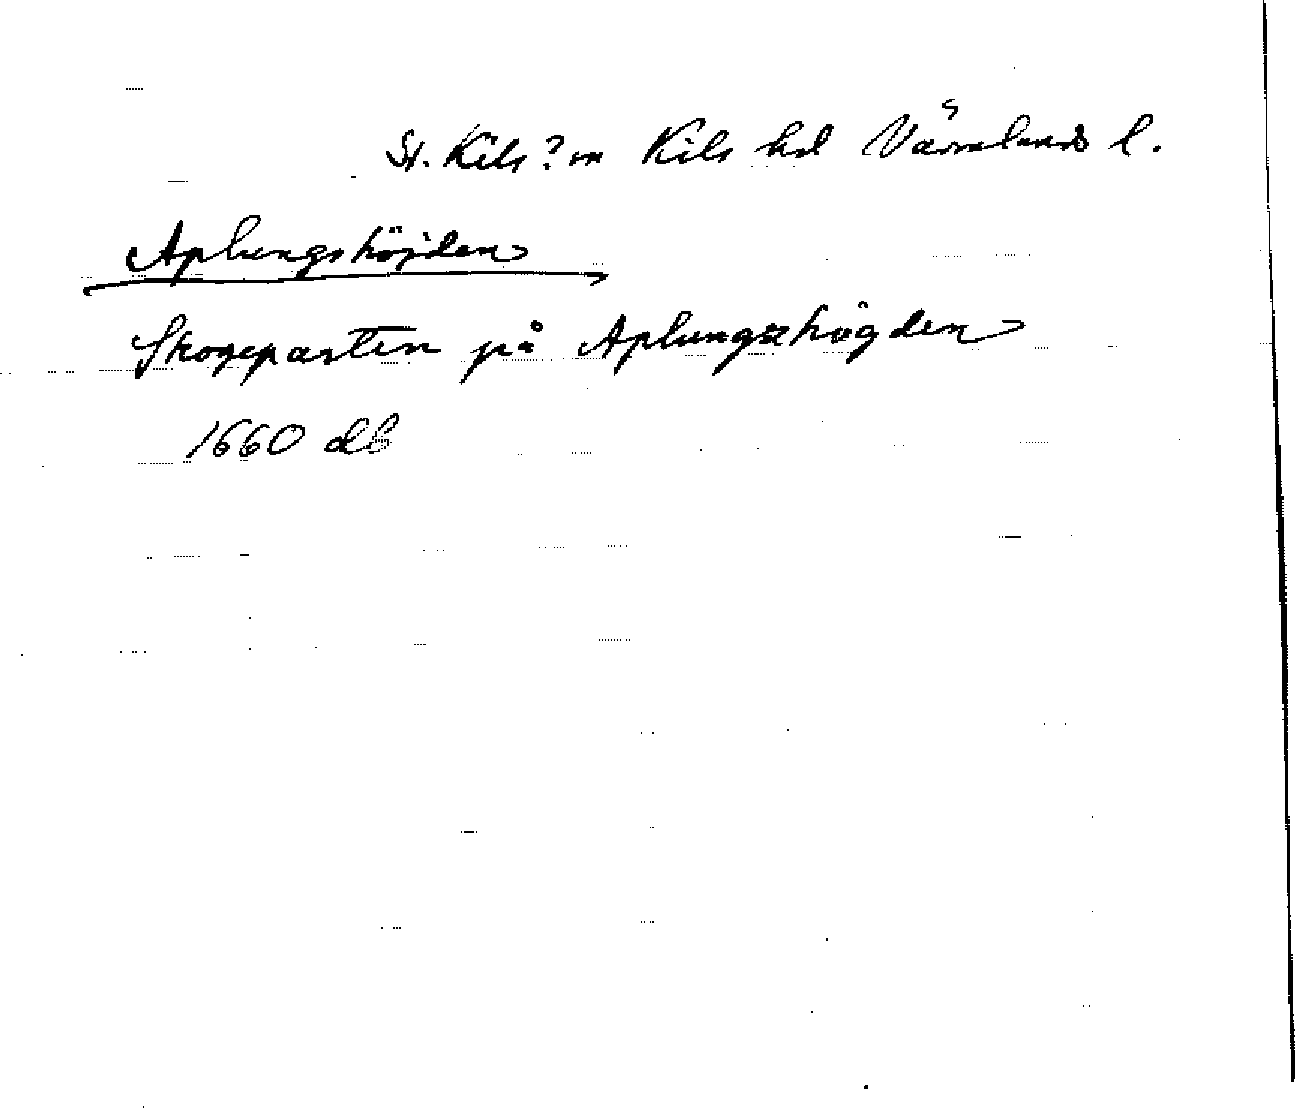 St. Kils? sn Kils hd Värmlands l.
Aplungshöjden
Skogsparten på Aplungshögden
1660 db